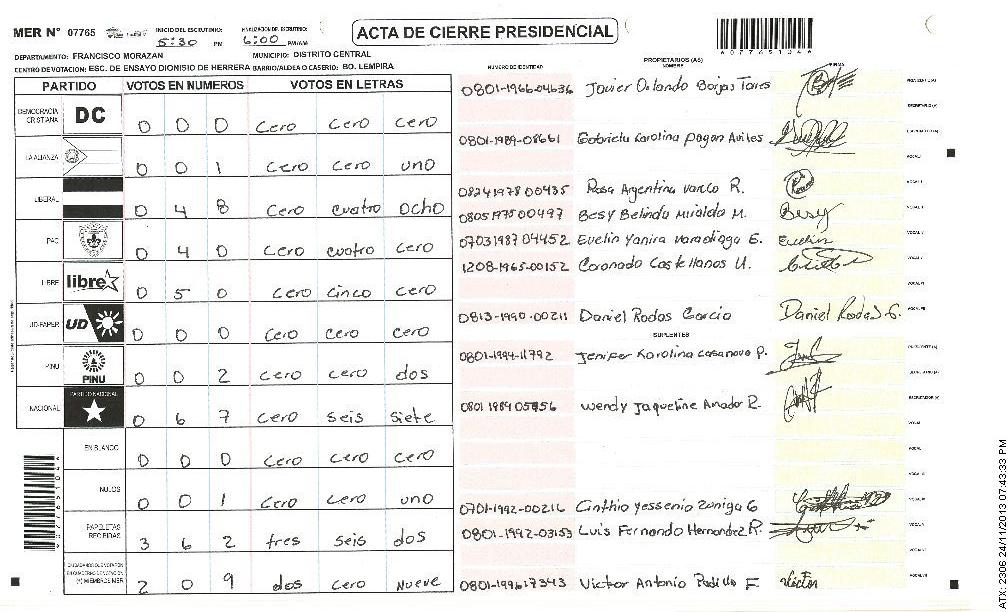 MER N° 07765 INICIO DEL ESCRUTINIO: 5:30 PM FINALIZACION DEL ESCRUTINIO: 6:00 PM/AM ACTA DE CIERRE PRESIDENCIAL
DEPARTAMENTO: FRANCISCO MORAZAN MUNICIPIO: DISTRITO CENTRAL
CENTRO DE VOTACION: ESC. DE ENSAYO DIONISIO DE HERRERA BARRIO/ALDEA O CASERIO: BO. LEMPIRA
PARTIDO VOTOS EN NUMEROS VOTOS EN LETRAS
DEMOCRACIA CRISTIANA DC 0 0 0 Cero Cero Cero
LA ALIANZA 0 0 1 Cero Cero uno
LIBERAL 0 4 8 Cero cuatro ocho
PAC 0 4 0 Cero cuatro cero
LIBRE libre 0 5 0 Cero Cinco cero
UD-FAPER UD 0 0 0 Cero cero cero
PINU PINU 0 0 2 Cero Cero dos
NACIONAL PARTIDO NACIONAL 0 6 7 cero seis siete
EN BLANCO 0 0 0 Cero Cero cero
NULOS 0 0 1 Cero Cero uno
PAPELETAS RECIBIDAS 3 6 2 tres seis dos
2 0 9 dos Cero Nueve
NUMERO DE IDENTIDAD PROPIETARIOS (AS) NOMBRE FIRMAS
0801-1966-04636 Javier Orlando Borjas Torres
0801-1989-08661 Gabriela Karolina pagan Aviles
0824197800435 Rosa Argentina R.
0805197500497 Besy Belinda M. Besy
0703198704452 Evelin Yanira E. Evelin
1208-1965-00152 Coronado Castellanos U.
0813-1990-00211 Daniel Rodas Garcia Daniel Rodas G.
SUPLENTES
0801-1994-11792 Jenifer Karolina Casanova p.
0801 1989 05956 Wendy Jaqueline Amador R.
0701-1992-00216 Cinthia Yessenia Zuniga G
0801-1992-03153 Luis Fernando Hernandez R.
0801-1996-17343 Victor Antonio Padilla F Victor
ATX 2306 24/11/2013 07:43:33 PM